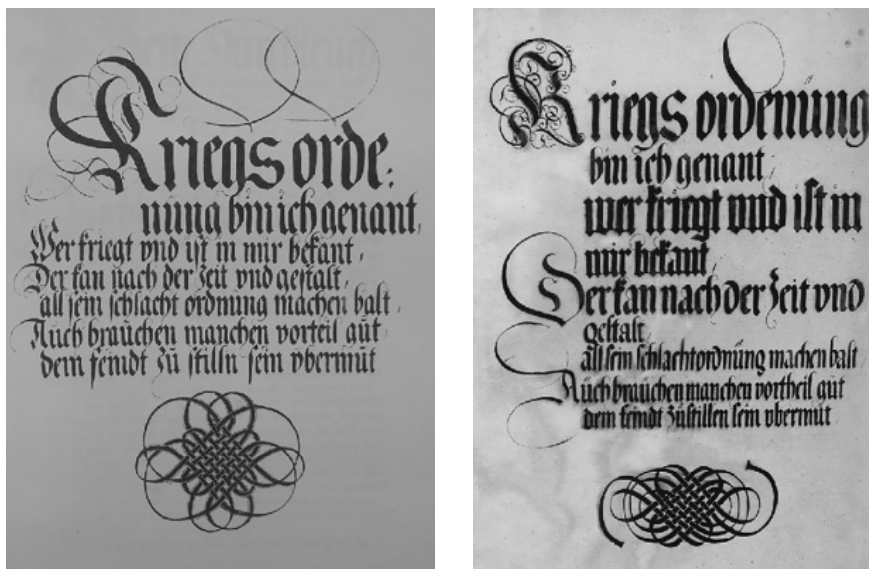 Kriegs orde:
nung bin ich genant,
Wer kriegt vnd ist in mir bekant,
Der kan nach der Zeit vnd gestalt,
all sein schlacht ordnung machen balt,
Auch braüchen manchen vorteil güt
dem feindt Zü stilln sein vbermüt
Kriegs ordenüng
bin ich genant,
wer kriegt vnd ist in
mir bekant,
Der kan nach der Zeit vnd
gestalt,
all sein schlachtordnüng machen balt
Aüch braüchen manchen vortheil güt
dem feindt Züstillen sein vbermüt,